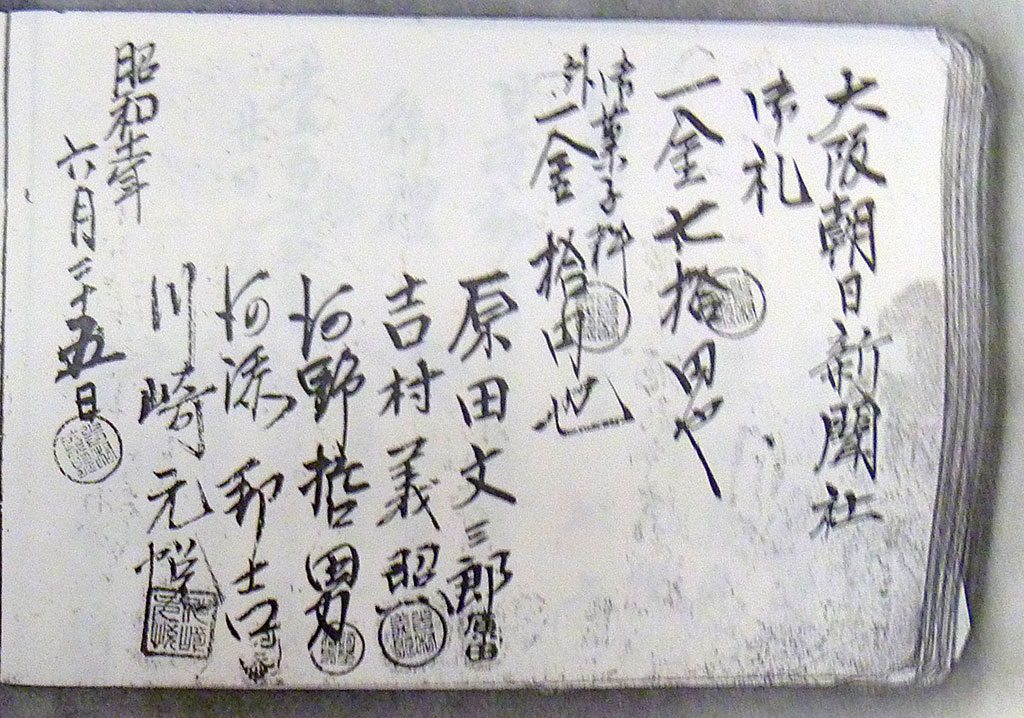 大阪朝日新聞社
御礼
一金七拾円也
御菓子料
外一金拾円也
原田文三郎
吉村義照
河野哲男
河添
川崎元
昭和年
六月二十五日